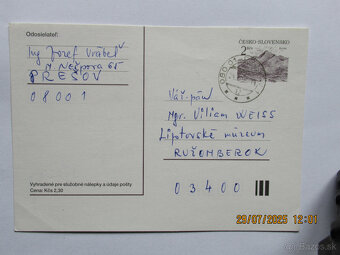 Odosielateľ:
Ing Jozef Vrábeľ
M. Nešpora 65
PREŠOV
08001
Vyhradené pre služobné nálepky a údaje pošty
Cena: Kčs 2,30
ČESKO-SLOVENSKO
2
Kčs
080 01
Váž. pán
Mgr. Viliam WEISS
Liptovské múzeum
RUŽOMBEROK
03400
23/07/2025 12:01
sk.bazar.sk